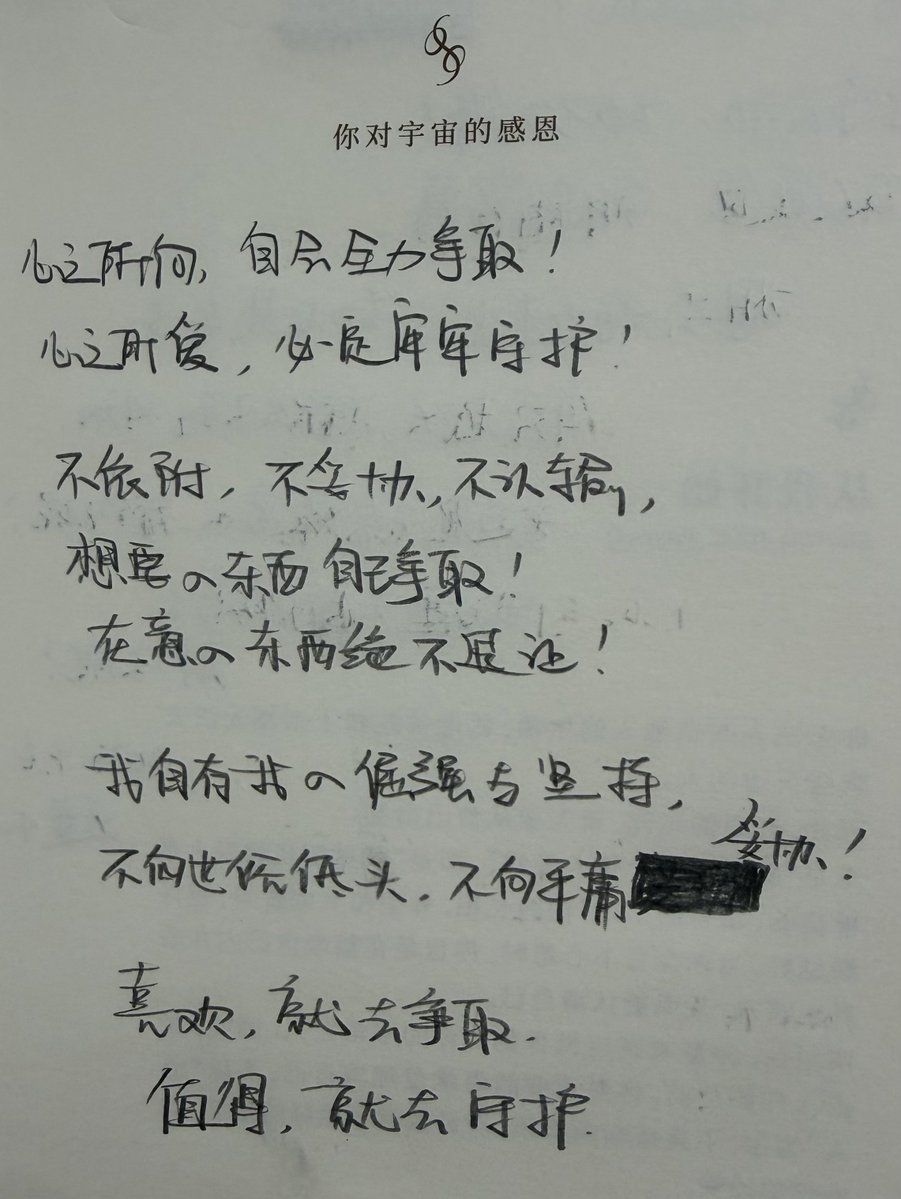 你对宇宙的感恩
心之所向,自会全力争取!
心之所爱,必定牢牢守护!
不依附,不妥协,不认输,
想要的东西自己争取!
在意的东西绝不退让!
我自有我的倔强与坚持,
不向世俗低头.不向平庸妥协!
喜欢,就去争取.
值得,就去守护.